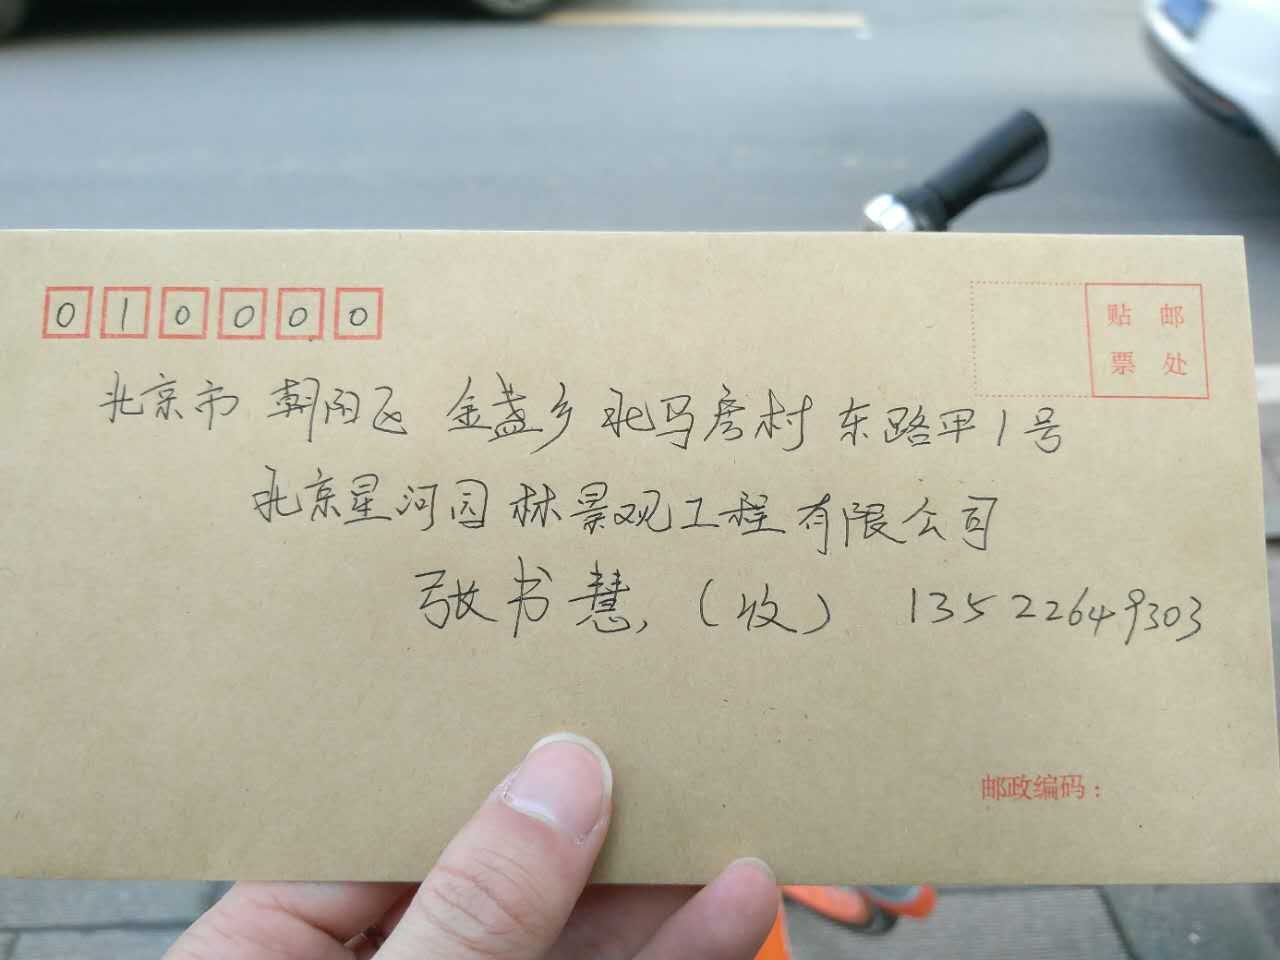 010000
贴邮
票处
北京市朝阳区金盏乡北马房村东路甲1号
北京星河园林景观工程有限公司
张书慧(收) 13522649303
邮政编码: